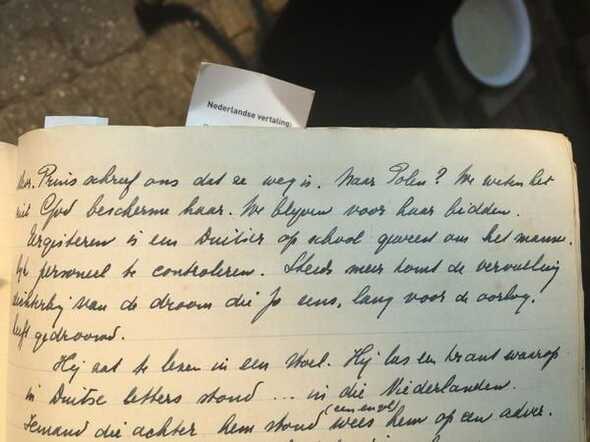 Nederlandse vertaling:
Mr. Pruis schreef ons dat ze weg is. Naar Polen? We weten het
niet God bescherme haar. We blijven voor haar bidden.
Eergisteren is een Duitser op school geweest om het manne-
lijk personeel te controleren. Steeds meer komt de vervulling
dichterbij van de droom die Jo eens, lang voor de oorlog,
heeft gedroomd.
Hij zat te lezen in een stoel. Hij las een krant waarop
in Duitse letters stond ... in die Niederlanden.
Iemand die achter hem stond (een engel) wees hem op een adver-